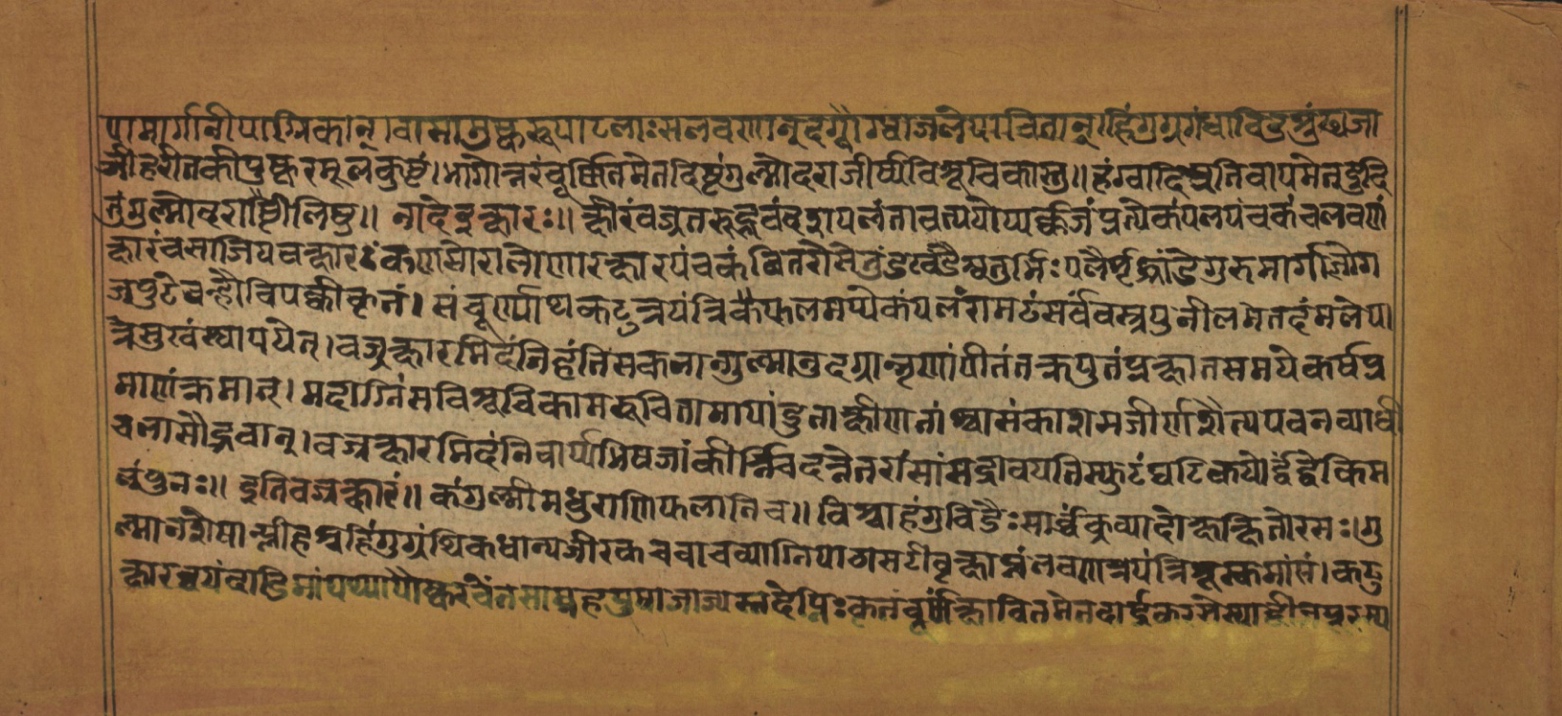 पामार्गानीपाग्निकान्।वामामुष्ककरूपाटलाःसलवणानूदग्धौग्वाजलेपाचितान्।हिंगुग्रगंधाविडशुंठ्यजा
जीहरीतकीपुष्करमूलकुष्टं।भागोत्तरंचूर्णितमेतदिष्टंगुल्मोदराजीर्ण्यविश्रूचिकासु॥हंग्वादिप्रतिवापमेतद्वुदि
तंगुल्मोदराष्टीलिषु॥ नादेइक्षारः॥ क्षीरंवज्रतरुद्भवंदशपलंतावत्पयोप्यर्कजंप्रत्येकंपलपंचकंचलवणं
क्षारंचसाजियवक्षारटंकणमोरालोणारक्षारपंचकंवितरौसेतुंडखंडैश्चतुर्भिःपलैर्मृद्भांडेगुरुमार्गिलोग
जपुटेवन्हौविपक्वीकृतं। संचूर्ण्याथकटुत्रयंत्रिकैफलमप्येकंपलंरामठंसर्वंवस्त्रपुनीलमेतदंमलेपा
त्रेसुखंस्थापयेत्।वज्रक्षारमिदंनिहंतिसकलान्गुल्मानुदग्रान्नृणांपीतंतक्रपुतंप्रक्षातसमयेकर्षप्र
माणंक्रमात्।मदाग्निंसविश्रूचिकामरुचितामापांडुताक्षीणतांश्वासंकाशमजीर्णशैत्यपवनव्याधी
चलासौद्भवान्।वज्रक्षारमिदंनिवार्य्यभिषजांकीर्त्तिंविदत्तेतरांसांमद्रीवयतिस्फुटंघटिकयोर्द्वंद्वेकिम
लंपुनः॥ इतिवज्रक्षारं॥ कंगुल्मीमधुराणिफलानिच॥ विश्वाहंगुविडैःसार्धंक्रव्यादोक्षक्षितोरसः।गु
ल्मानशेषान्प्लीहश्चहिंगुग्रंथिकधान्यजीरकचवाचव्याग्निपाठासटीवृक्षाम्लंलवणत्रयंत्रिश्रूस्कमांसं।कटु
क्षारद्वयंदाडिमांपथ्यापौष्करवेतसाम्लहपुषाजाज्यस्तदेभिःकृतंचूर्णंभावितमेतदार्द्रकरसेस्याद्बीजपूरस्य